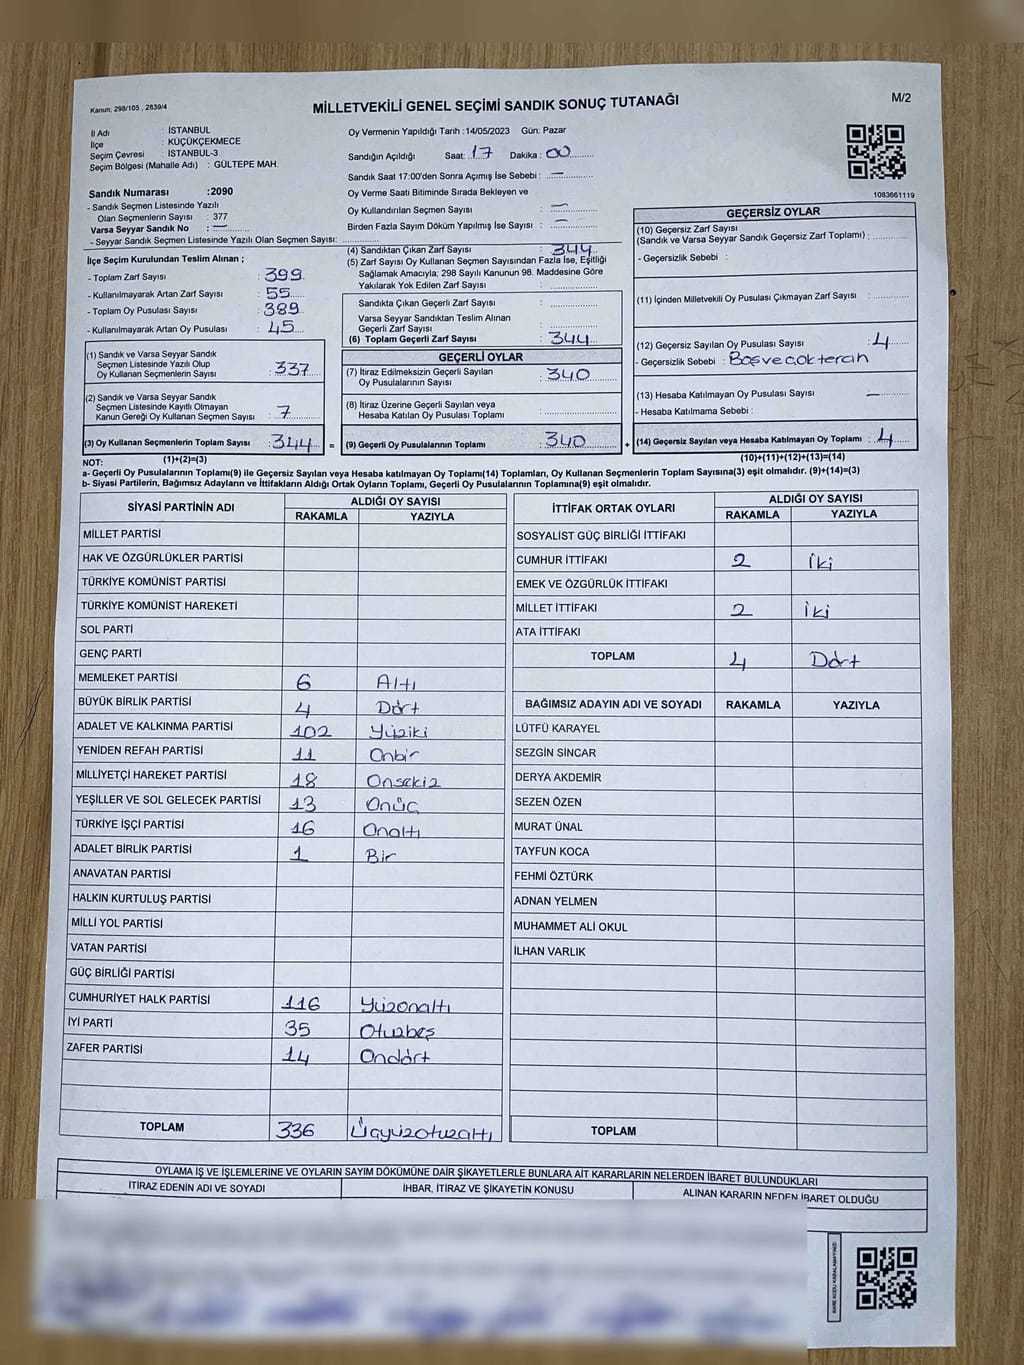 Kanun; 298/105 , 2839/4
MİLLETVEKİLİ GENEL SEÇİMİ SANDIK SONUÇ TUTANAĞI
M/2
İl Adı : İSTANBUL
İlçe : KÜÇÜKÇEKMECE
Seçim Çevresi : İSTANBUL-3
Seçim Bölgesi (Mahalle Adı) : GÜLTEPE MAH.
Oy Vermenin Yapıldığı Tarih :14/05/2023 Gün: Pazar
Sandığın Açıldığı Saat: 17 Dakika : 00
Sandık Saat 17:00'den Sonra Açımış İse Sebebi : —
Oy Verme Saati Bitiminde Sırada Bekleyen ve
Oy Kullandırılan Seçmen Sayısı : —
Birden Fazla Sayım Döküm Yapılmış İse Sayısı : —
1083661119
Sandık Numarası :2090
- Sandık Seçmen Listesinde Yazılı
Olan Seçmenlerin Sayısı : 377
Varsa Seyyar Sandık No : —
- Seyyar Sandık Seçmen Listesinde Yazılı Olan Seçmen Sayısı:
İlçe Seçim Kurulundan Teslim Alınan ;
- Toplam Zarf Sayısı : 399
- Kullanılmayarak Artan Zarf Sayısı : 55
- Toplam Oy Pusulası Sayısı : 389
- Kullanılmayarak Artan Oy Pusulası : 45
(1) Sandık ve Varsa Seyyar Sandık
Seçmen Listesinde Yazılı Olup
Oy Kullanan Seçmenlerin Sayısı : 337
(2) Sandık ve Varsa Seyyar Sandık
Seçmen Listesinde Kayıtlı Olmayan
Kanun Gereği Oy Kullanan Seçmen Sayısı : 7
(3) Oy Kullanan Seçmenlerin Toplam Sayısı : 344
(1)+(2)=(3)
(4) Sandıktan Çıkan Zarf Sayısı : 344
(5) Zarf Sayısı Oy Kullanan Seçmen Sayısından Fazla İse, Eşitliği
Sağlamak Amacıyla; 298 Sayılı Kanunun 98. Maddesine Göre
Yakılarak Yok Edilen Zarf Sayısı :
Sandıkta Çıkan Geçerli Zarf Sayısı :
Varsa Seyyar Sandıktan Teslim Alınan
Geçerli Zarf Sayısı :
(6) Toplam Geçerli Zarf Sayısı : 344
GEÇERLİ OYLAR
(7) İtiraz Edilmeksizin Geçerli Sayılan
Oy Pusulalarının Sayısı : 340
(8) İtiraz Üzerine Geçerli Sayılan veya
Hesaba Katılan Oy Pusulası Toplamı :
= (9) Geçerli Oy Pusulalarının Toplamı : 340
GEÇERSİZ OYLAR
(10) Geçersiz Zarf Sayısı
(Sandık ve Varsa Seyyar Sandık Geçersiz Zarf Toplamı) :
- Geçersizlik Sebebi :
(11) İçinden Milletvekili Oy Pusulası Çıkmayan Zarf Sayısı :
(12) Geçersiz Sayılan Oy Pusulası Sayısı : 4
- Geçersizlik Sebebi : Boş ve çok tercih
(13) Hesaba Katılmayan Oy Pusulası Sayısı : —
- Hesaba Katılmama Sebebi :
+ (14) Geçersiz Sayılan veya Hesaba Katılmayan Oy Toplamı : 4
(10)+(11)+(12)+(13)=(14)
NOT:
a- Geçerli Oy Pusulalarının Toplamı(9) ile Geçersiz Sayılan veya Hesaba katılmayan Oy Toplamı(14) Toplamları, Oy Kullanan Seçmenlerin Toplam Sayısına(3) eşit olmalıdır. (9)+(14)=(3)
b- Siyasi Partilerin, Bağımsız Adayların ve İttifakların Aldığı Ortak Oyların Toplamı, Geçerli Oy Pusulalarının Toplamına(9) eşit olmalıdır.
SİYASİ PARTİNİN ADI ALDIĞI OY SAYISI
RAKAMLA YAZIYLA
MİLLET PARTİSİ
HAK VE ÖZGÜRLÜKLER PARTİSİ
TÜRKİYE KOMÜNİST PARTİSİ
TÜRKİYE KOMÜNİST HAREKETİ
SOL PARTİ
GENÇ PARTİ
MEMLEKET PARTİSİ 6 Altı
BÜYÜK BİRLİK PARTİSİ 4 Dört
ADALET VE KALKINMA PARTİSİ 102 Yüziki
YENİDEN REFAH PARTİSİ 11 Onbir
MİLLİYETÇİ HAREKET PARTİSİ 18 Onsekiz
YEŞİLLER VE SOL GELECEK PARTİSİ 13 Onüç
TÜRKİYE İŞÇİ PARTİSİ 16 Onaltı
ADALET BİRLİK PARTİSİ 1 Bir
ANAVATAN PARTİSİ
HALKIN KURTULUŞ PARTİSİ
MİLLİ YOL PARTİSİ
VATAN PARTİSİ
GÜÇ BİRLİĞİ PARTİSİ
CUMHURİYET HALK PARTİSİ 116 Yüzonaltı
İYİ PARTİ 35 Otuzbeş
ZAFER PARTİSİ 14 Ondört
TOPLAM 336 Üçyüzotuzaltı
İTTİFAK ORTAK OYLARI ALDIĞI OY SAYISI
RAKAMLA YAZIYLA
SOSYALİST GÜÇ BİRLİĞİ İTTİFAKI
CUMHUR İTTİFAKI 2 İki
EMEK VE ÖZGÜRLÜK İTTİFAKI
MİLLET İTTİFAKI 2 İki
ATA İTTİFAKI
TOPLAM 4 Dört
BAĞIMSIZ ADAYIN ADI VE SOYADI RAKAMLA YAZIYLA
LÜTFÜ KARAYEL
SEZGİN SİNCAR
DERYA AKDEMİR
SEZEN ÖZEN
MURAT ÜNAL
TAYFUN KOCA
FEHMİ ÖZTÜRK
ADNAN YELMEN
MUHAMMET ALİ OKUL
İLHAN VARLIK
TOPLAM
OYLAMA İŞ VE İŞLEMLERİNE VE OYLARIN SAYIM DÖKÜMÜNE DAİR ŞİKAYETLERLE BUNLARA AİT KARARLARIN NELERDEN İBARET BULUNDUKLARI
İTİRAZ EDENİN ADI VE SOYADI İHBAR, İTİRAZ VE ŞİKAYETİN KONUSU ALINAN KARARIN NEDEN İBARET OLDUĞU
KARE KODU KARALAMAYINIZ!